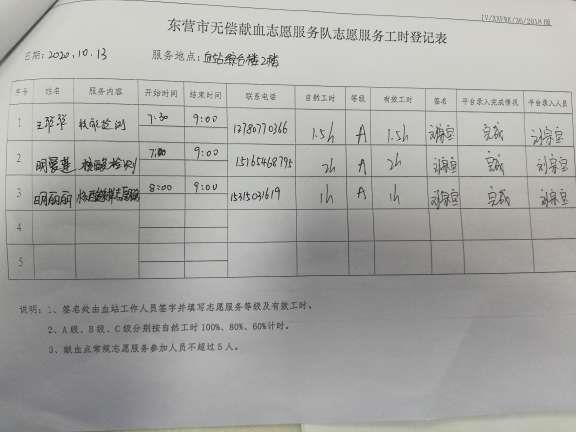 东营市无偿献血志愿服务队志愿服务工时登记表
日期：2020.10.13 服务地点：血站综合楼2楼
序号 姓名 服务内容 开始时间 结束时间 联系电话 自然工时 等级 有效工时 签名 平台录入完成情况 平台录入人员
1 王翠翠 核酸检测 7:30 9:00 1.5h A 1.5h 完成
2 核酸检测 7:00 9:00 15165468795 2h A 2h 完成
3 明丽丽 8:00 9:00 15315031619 1h A 1h 完成
4
5
说明：1、签名处由血站工作人员签字并填写志愿服务等级及有效工时。
2、A级、B级、C级分别按自然工时100%、80%、60%计时。
3、献血点常规志愿服务参加人员不超过5人。